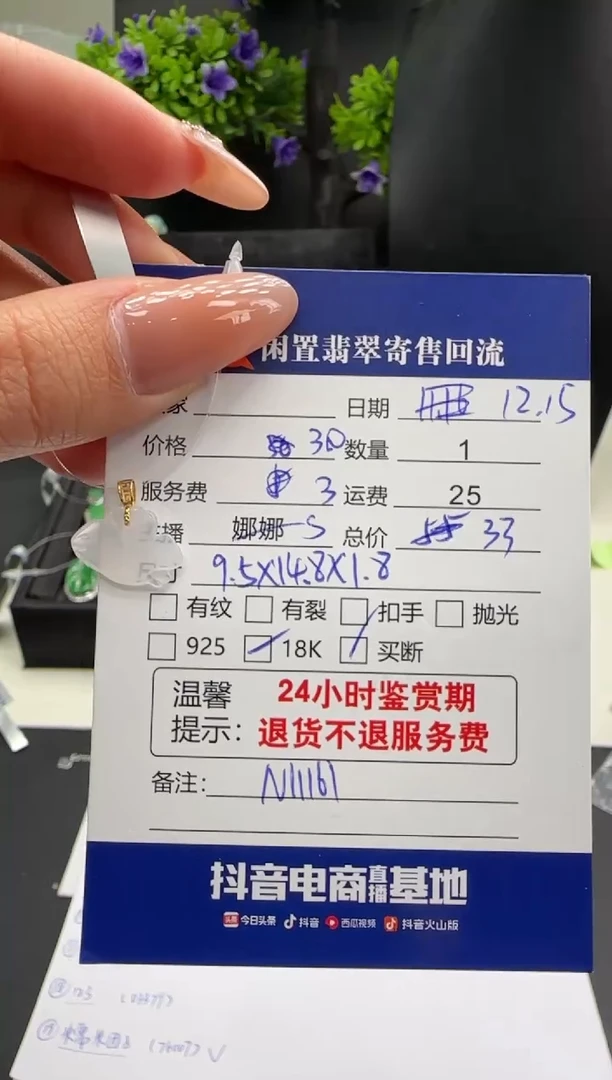 闲置翡翠寄售回流
家 日期 12.15
价格 30 数量 1
服务费 3 运费 25
播 娜娜-S 总价 33
寸 9.5X14.8X1.8
有纹 有裂 扣手 抛光
925 18K 买断
温馨 24小时鉴赏期
提示: 退货不退服务费
备注: N11161
抖音电商直播基地
今日头条 抖音 西瓜视频 抖音火山版